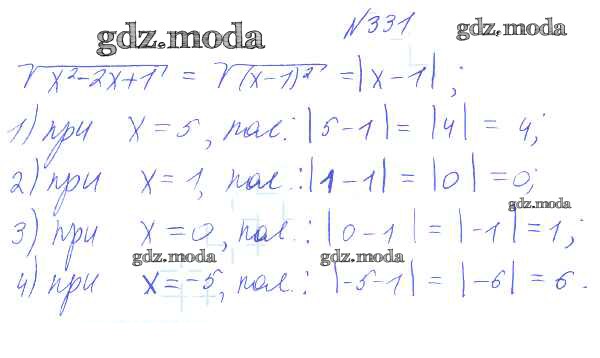 №331
gdz.moda gdz.moda
√x²-2x+1 = √(x-1)² = |x-1|;
1) при x=5, пол.: |5-1| = |4| = 4;
2) при x=1, пол.: |1-1| = |0| = 0;
gdz.moda
3) при x=0, пол.: |0-1| = |-1| = 1;
gdz.moda gdz.moda
4) при x=-5, пол.: |-5-1| = |-6| = 6.